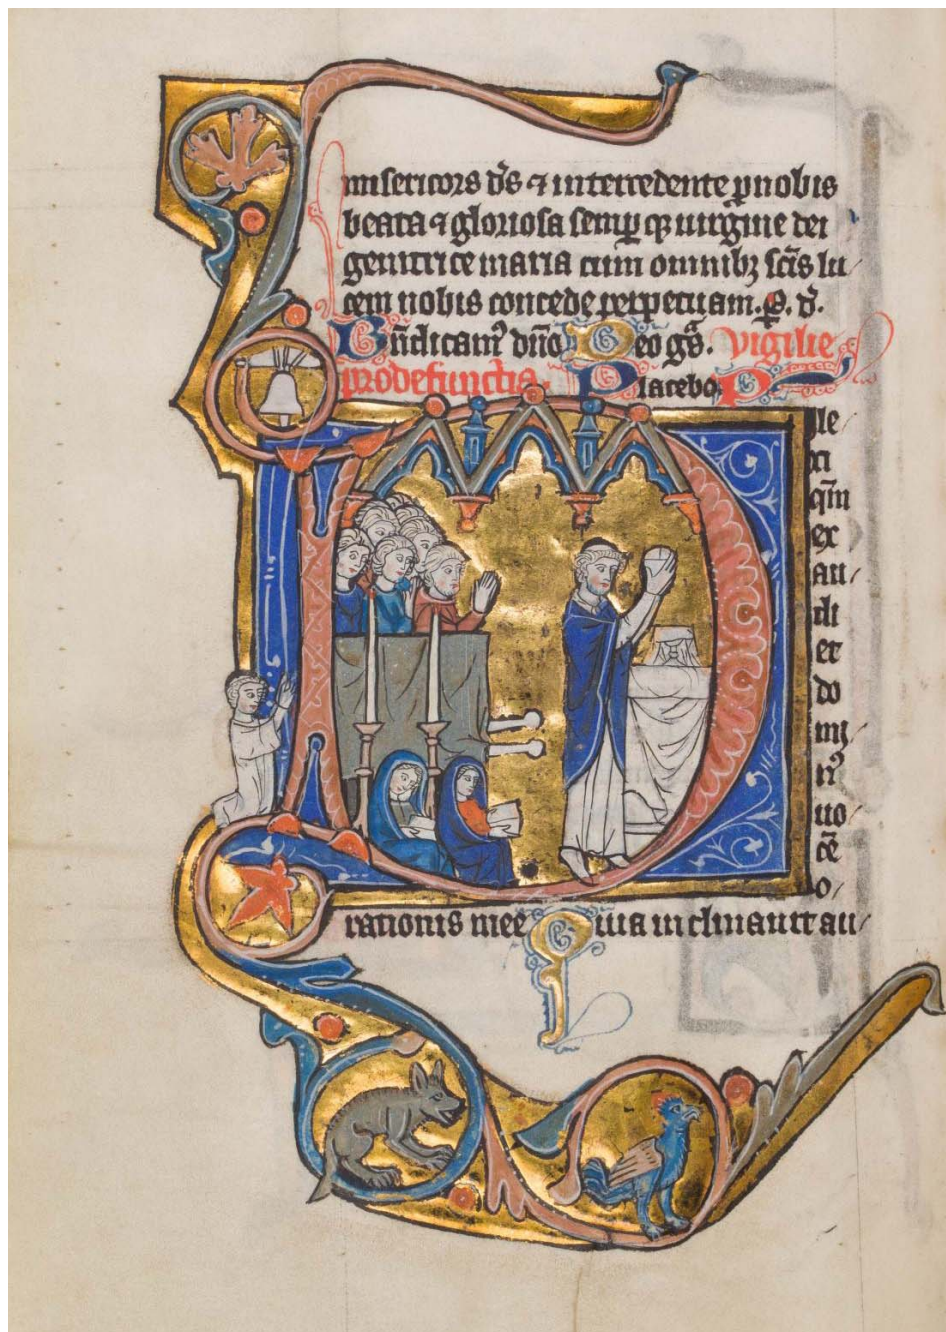 misericors d̄s ⁊ intercedente ꝓ nobis
beata ⁊ gloriosa semꝑ qꝫ uirgine dei
genitrice maria cum omnibꝫ sc̄is lu
cem nobis concede perpetuam. P. d̄.
Bn̄dicam᷒ dn̄o Deo gr̄s. Vigilie
pro defunctis. Placebo. P
D
ile
xi
qm̄
ex
au
di
et
do
mi
n᷒
uo
cē
o
rationis mee Quia inclinauit au